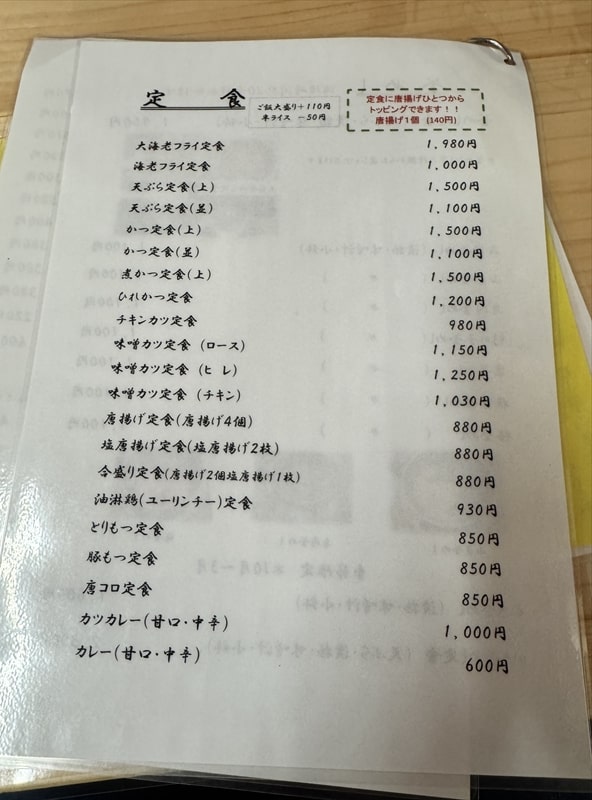 定食
ご飯大盛り+110円
半ライス －50円
定食に唐揚げひとつから
トッピングできます！！
唐揚げ1個 (140円)
大海老フライ定食 1,980円
海老フライ定食 1,000円
天ぷら定食(上) 1,500円
天ぷら定食(並) 1,100円
かつ定食(上) 1,500円
かつ定食(並) 1,100円
煮かつ定食(上) 1,500円
ひれかつ定食 1,200円
チキンカツ定食 980円
味噌カツ定食 (ロース) 1,150円
味噌カツ定食 (ヒレ) 1,250円
味噌カツ定食 (チキン) 1,030円
唐揚げ定食(唐揚げ4個) 880円
塩唐揚げ定食(塩唐揚げ2枚) 880円
合盛り定食(唐揚げ2個塩唐揚げ1枚) 880円
油淋鶏(ユーリンチー)定食 930円
とりもつ定食 850円
豚もつ定食 850円
唐コロ定食 850円
カツカレー(甘口・中辛) 1,000円
カレー(甘口・中辛) 600円